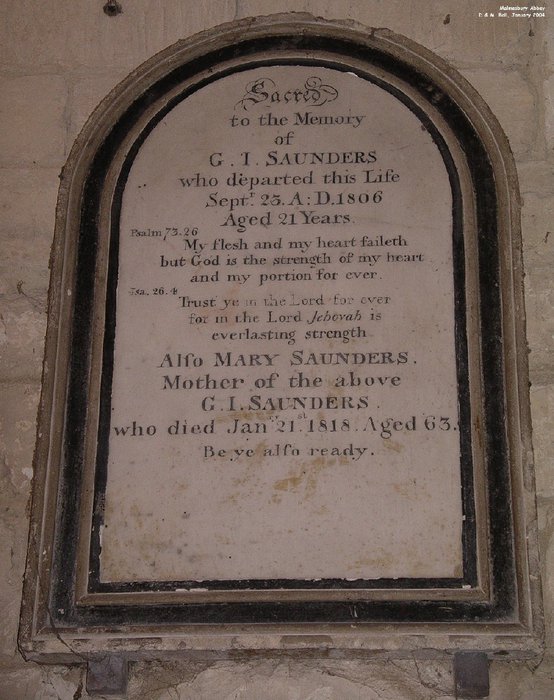 Malmesbury Abbey
T. & M. Bell, January 2004
Sacred
to the Memory
of
G. I. SAUNDERS
who departed this Life
Sept.r 23. A: D. 1806
Aged 21 Years.
Psalm 73. 26
My flesh and my heart faileth
but God is the strength of my heart
and my portion for ever.
Isa. 26. 4
Trust ye in the Lord for ever
for in the Lord Jehovah is
everlasting strength
Alſo MARY SAUNDERS.
Mother of the above
G. I. SAUNDERS.
who died Jan.ry 21.st 1818. Aged 63.
Be ye alſo ready.